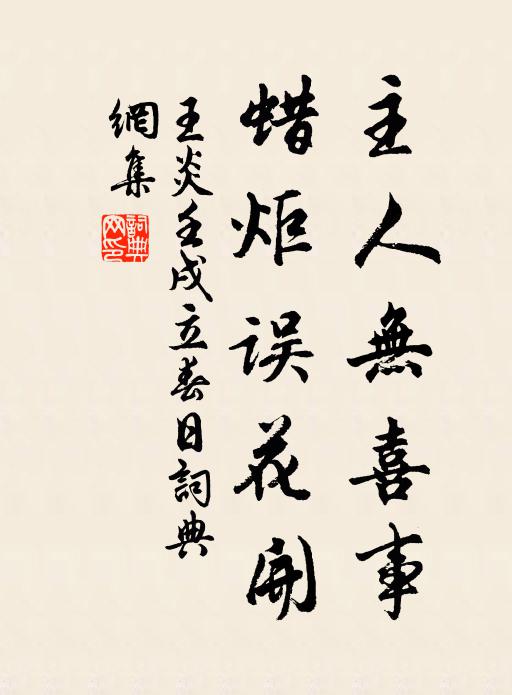 主人無喜事
蜡炬误花開
王炎壬戌立春日詞典
網集
詞典
网印